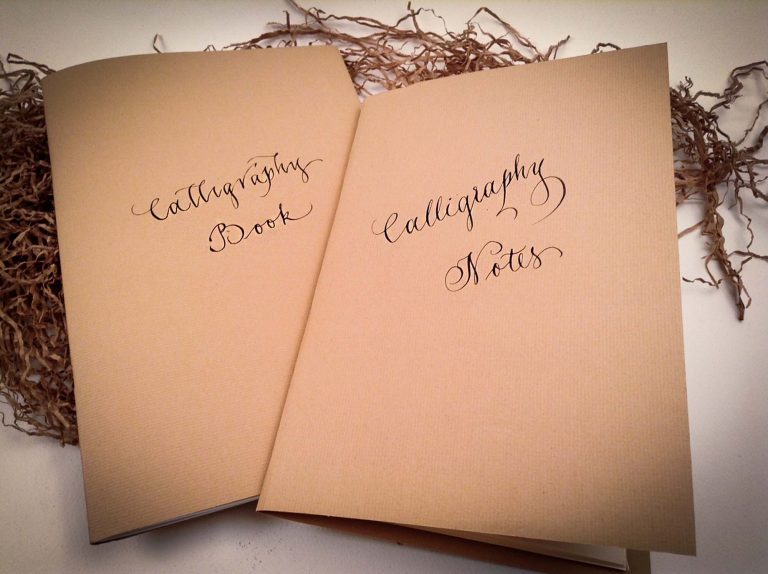 Calligraphy
Book
Calligraphy
Notes